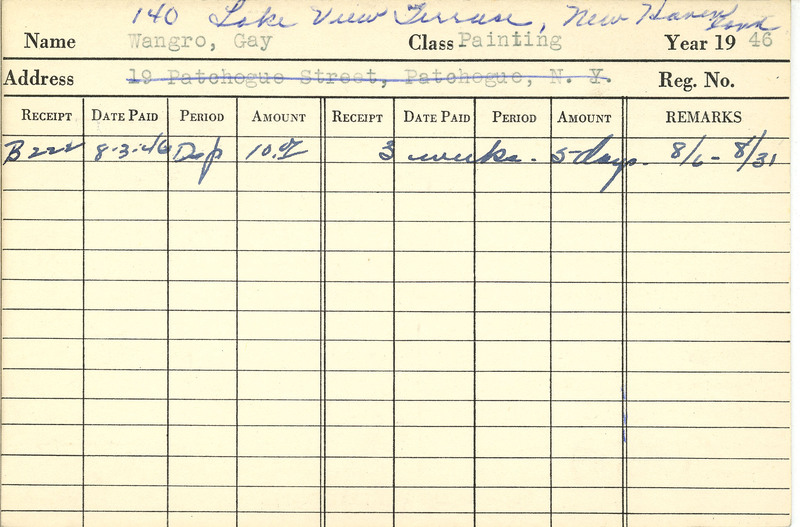 140 Lake View Terrase, New Haven Conn
Name Wangro, Gay Class Painting Year 19 46
Address 19 Patchogue Street, Patchogue, N. Y. Reg. No.
RECEIPT DATE PAID PERIOD AMOUNT RECEIPT DATE PAID PERIOD AMOUNT REMARKS
B222 8-3-46 Dep 10.00 3 weeks - 5-days - 8/6 - 8/31